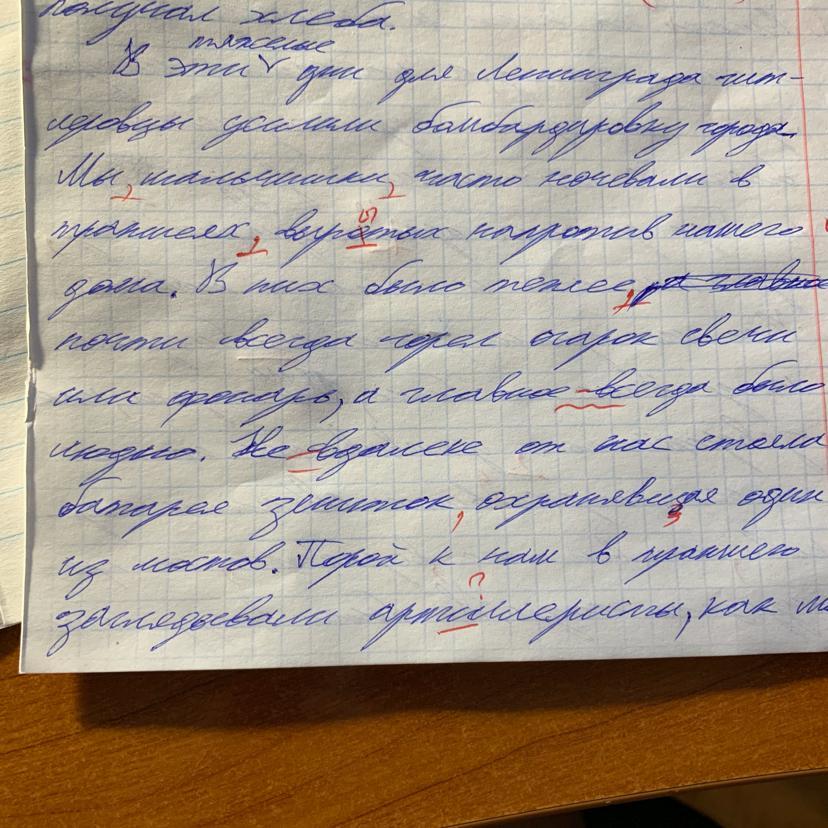 получал хлеба.
тяжелые
В эти дни для Ленинграда гит-
леровцы усилили бомбардировку города.
Мы, мальчишки, часто ночевали в
траншеях, выротых напротив нашего
дома. В них было теплее, а главное
почти всегда горел огарок свечи
или фонарь, а главное-всегда было
людно. Не вдалеке от нас стояла
батарея зениток, охранявшая один
из мостов. Порой к нам в траншею
заглядывали артиллеристы, как